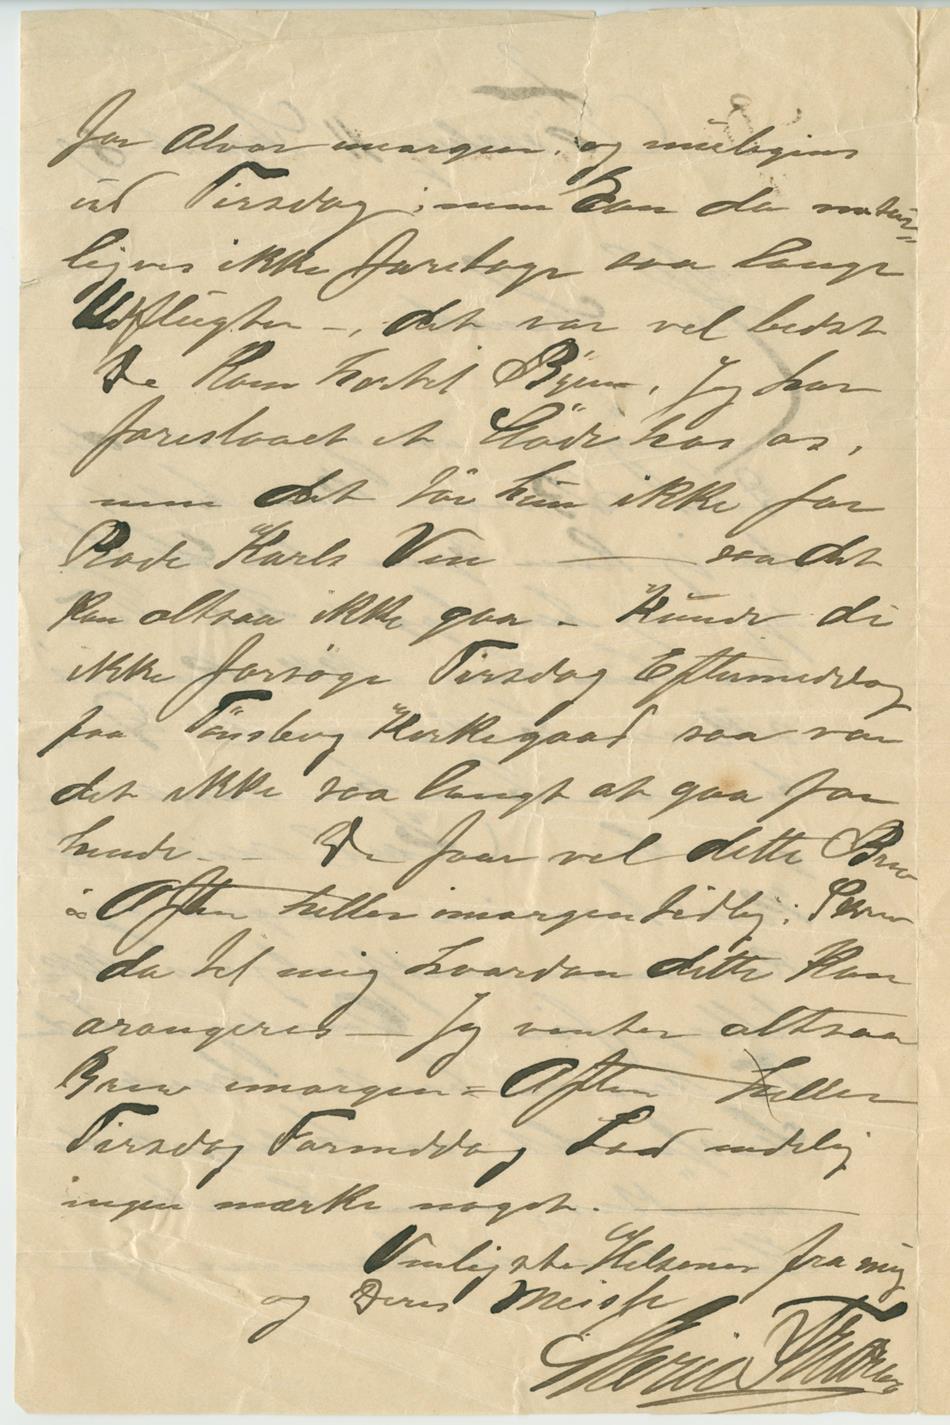 for Alvor imorgen. og muligens
ud Tirsdag; men kan da natur=
ligvis ikke foretage saa lange
Udflugter -, det var vel bedst
De kom hertil Byen. Jeg har
foreslaaet et Møde hos os,
men det tør hun ikke for
Rode Karls Ven — saa det
kan altsaa ikke gaa - Kunde de
ikke forsøge Tirsdag Eftermiddag
paa Tønsberg Kirkegaard saa var
det ikke saa langt at gaa for
hende - De faar vel dette Brev
i Aften heller imorgen tidlig; Skriv
da til mig hvordan dette kan
arangeres — Jeg venter altsaa
Brev imorgen = Aften heller
Tirsdag Formiddag Lad endelig
ingen mærke noget.
Venligste Hilsener fra mig
og Deres